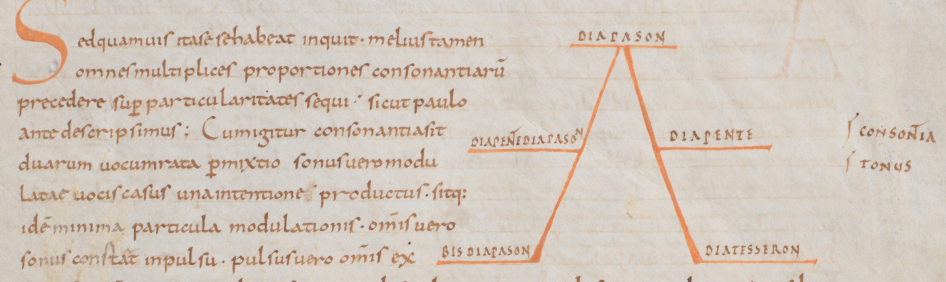 Sedquamuis itase sehabeat inquit · meliustamen
omnesmultiplices proportiones consonantiarū
precedere sup̱ particularitates sequi · sicut paulo
ante descripsimus ; Cumigitur consonantiasit
duarum uocumrata p̱mixtio sonusueromodu
latae uocis casus unaintentione productus · sitq:
idē minima particula modulationis · om̄is uero
sonus constat inpulsu · pulsusuero om̄is ex
DIAPASON
DIAPEN̄EDIAPASON
DIAPENTE
BIS DIAPASON
DIATESSERON
ſ CONSON̄IA
ſ TONUS